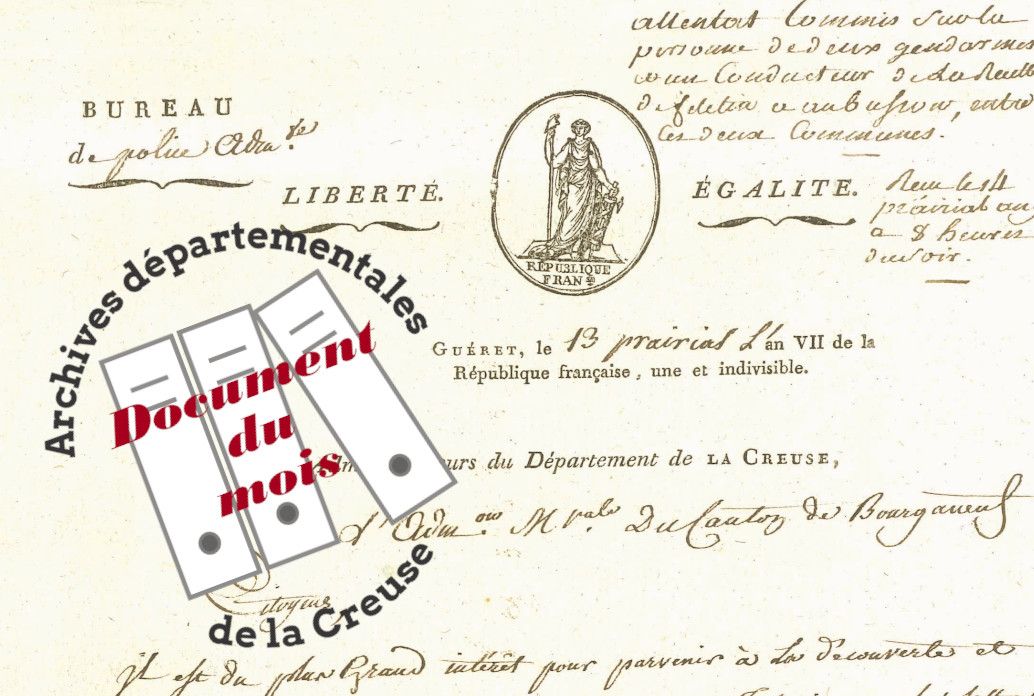 attentat Commis sur la
personne de deux gendarmes
et un Conducteur de La
de felletin a aubusson, entre
les deux Communes.
BUREAU
de police Adm.ve
LIBERTÉ.
ÉGALITÉ.
RÉPUBLIQUE
FRAN.se
Reçu le 14
prairial an
a 8 heures
du soir.
Archives départementales
Document
du
mois
de la Creuse
GUÉRET, le 13 prairial L'an VII de la
République française, une et indivisible.
urs du Département de LA CREUSE,
L'Adm.on M.pale Du Canton de Bourganeuf
Citoyens
il est du plus Grand intérêt pour parvenir à La decouverte et